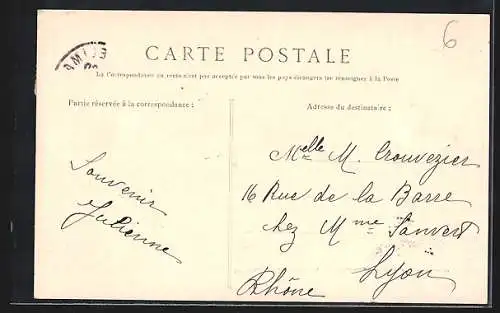 6
CARTE POSTALE
La Correspondance au recto n'est pas acceptée par tous les pays étrangers (se renseigner à la Poste
Partie réservée à la correspondance :
Adresse du destinataire :
Souvenir
Julienne
Melle M. Crouvezier
16 Rue de la Barre
chez Mme Sanvert
Lyon
Rhône